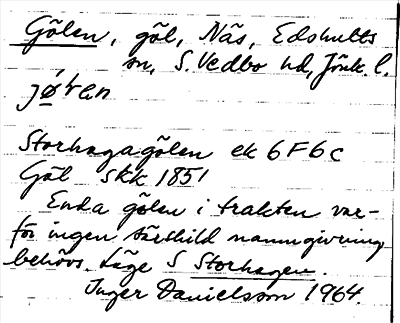 Gölen, göl, Näs, Edshults
sn, S. Vedbo hd, Jönk. l.
jø̀l̥an
Storhagagölen ek 6F6c
Göl skk 1851
Enda gölen i trakten var-
för ingen särskild namngivning
behövs. Läge S Storhagen.
Inger Danielsson 1964